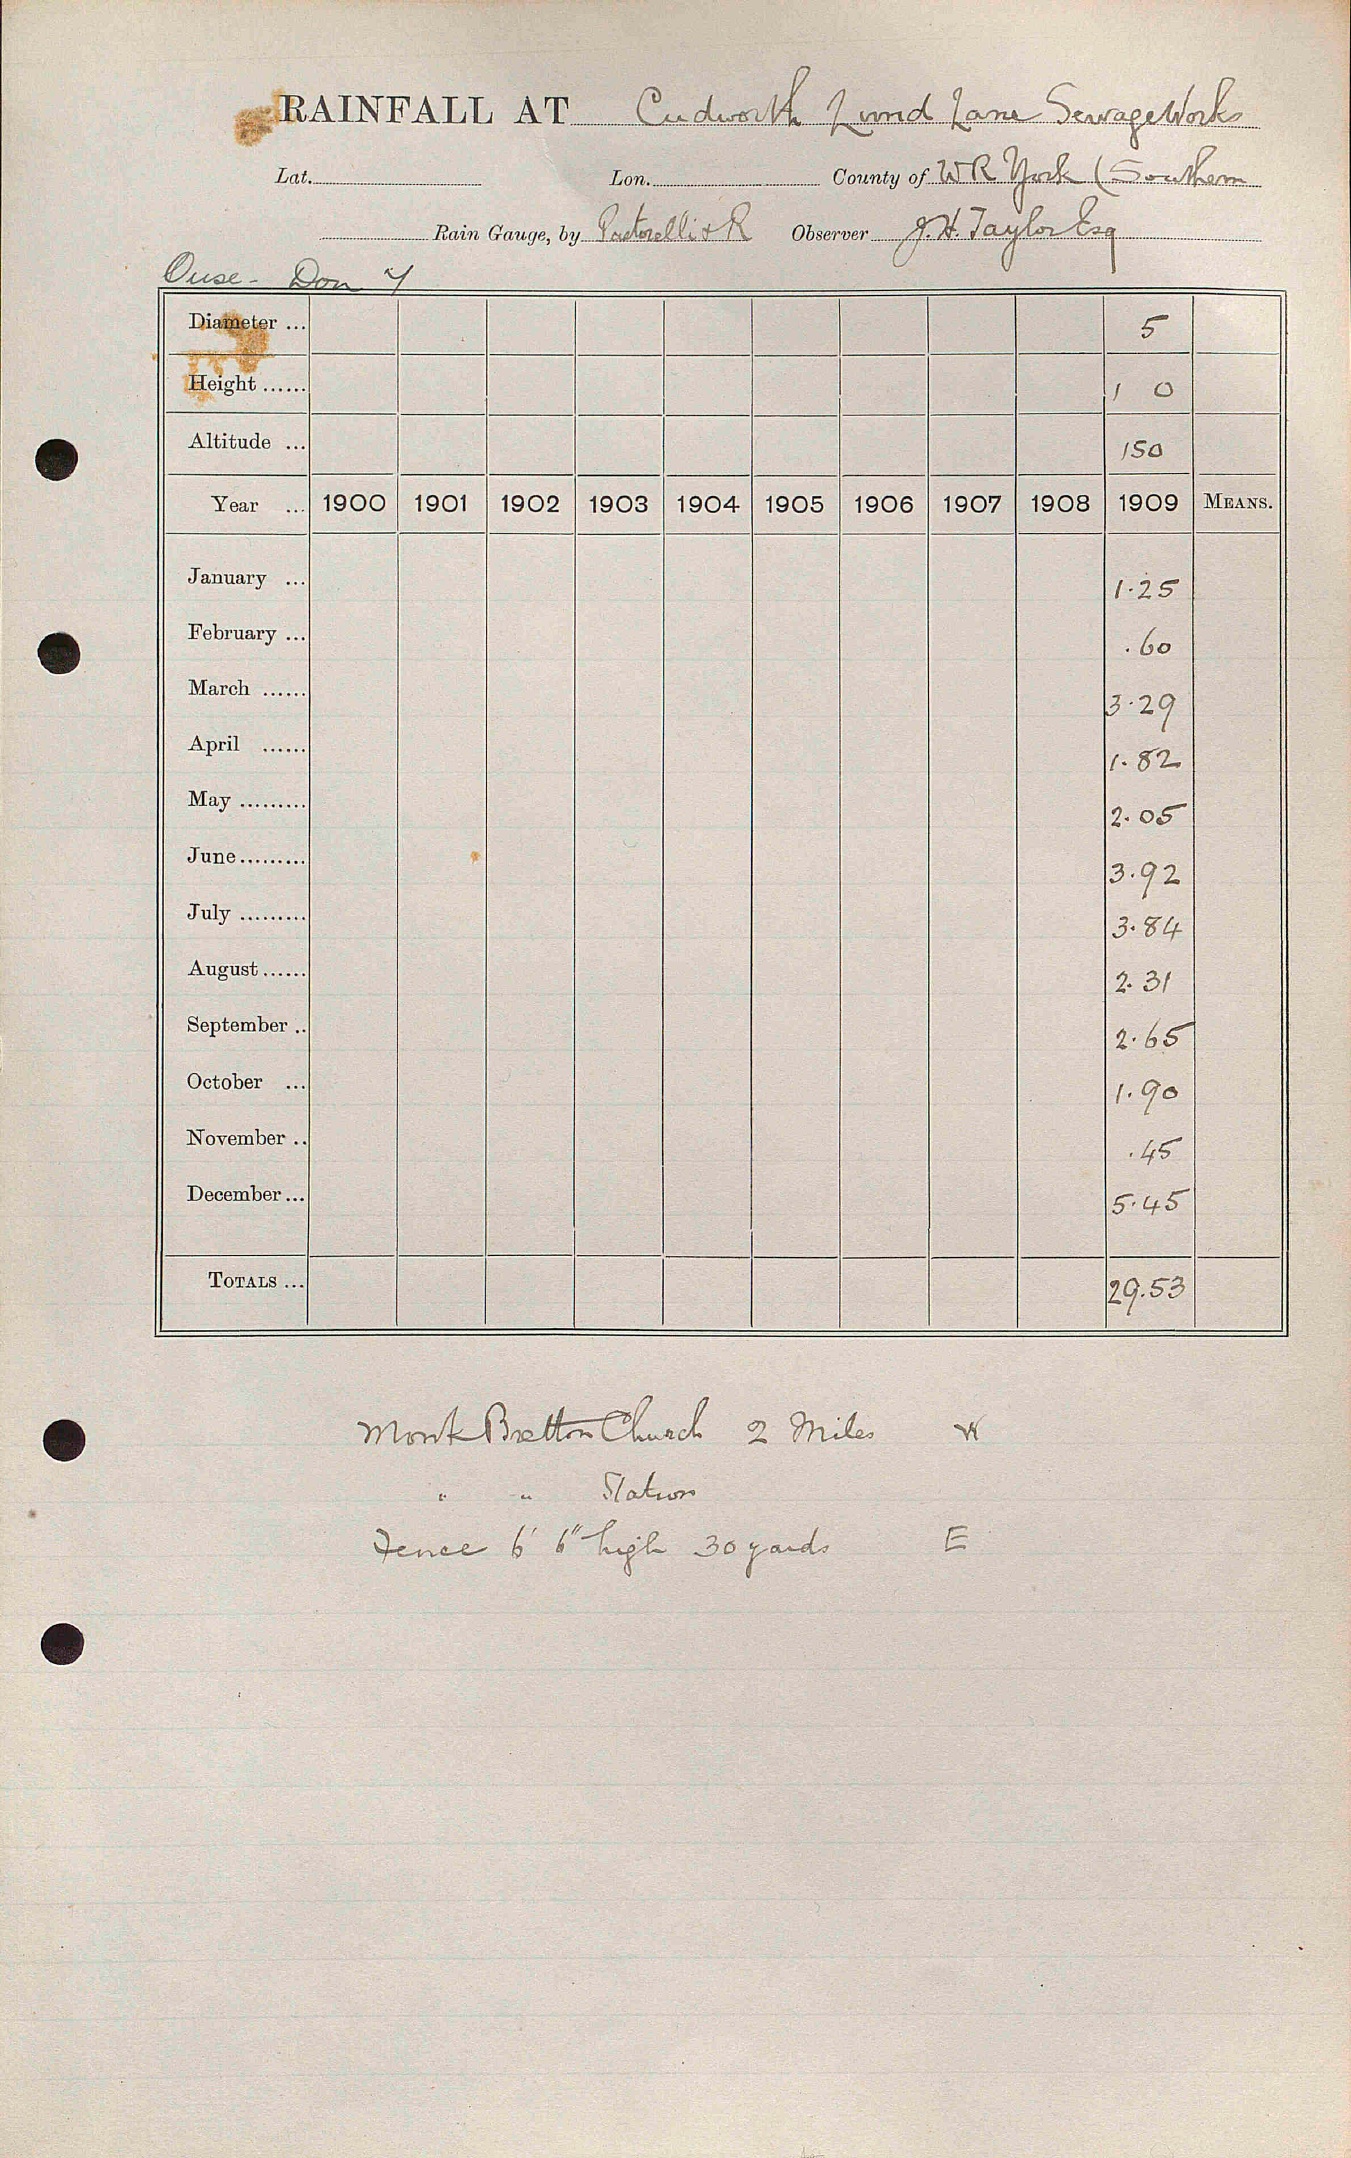 RAINFALL AT Cudworth Lund Lane Sewage Works
Lat. Lon. County of W R York (Southern
Rain Gauge, by Pastorelli & R Observer J. H. Taylor Esq
Ouse - Don
Diameter ... 5
Height ...... 1 0
Altitude ... 150
Year ... 1900 1901 1902 1903 1904 1905 1906 1907 1908 1909 MEANS.
January ... 1.25
February ... .60
March ...... 3.29
April ...... 1.82
May ......... 2.05
June ......... 3.92
July ......... 3.84
August ...... 2.31
September .. 2.65
October ... 1.90
November .. .45
December ... 5.45
TOTALS ... 29.53
Monk Bretton Church 2 Miles W
" " Station
Fence 6' 6" high 30 yards E